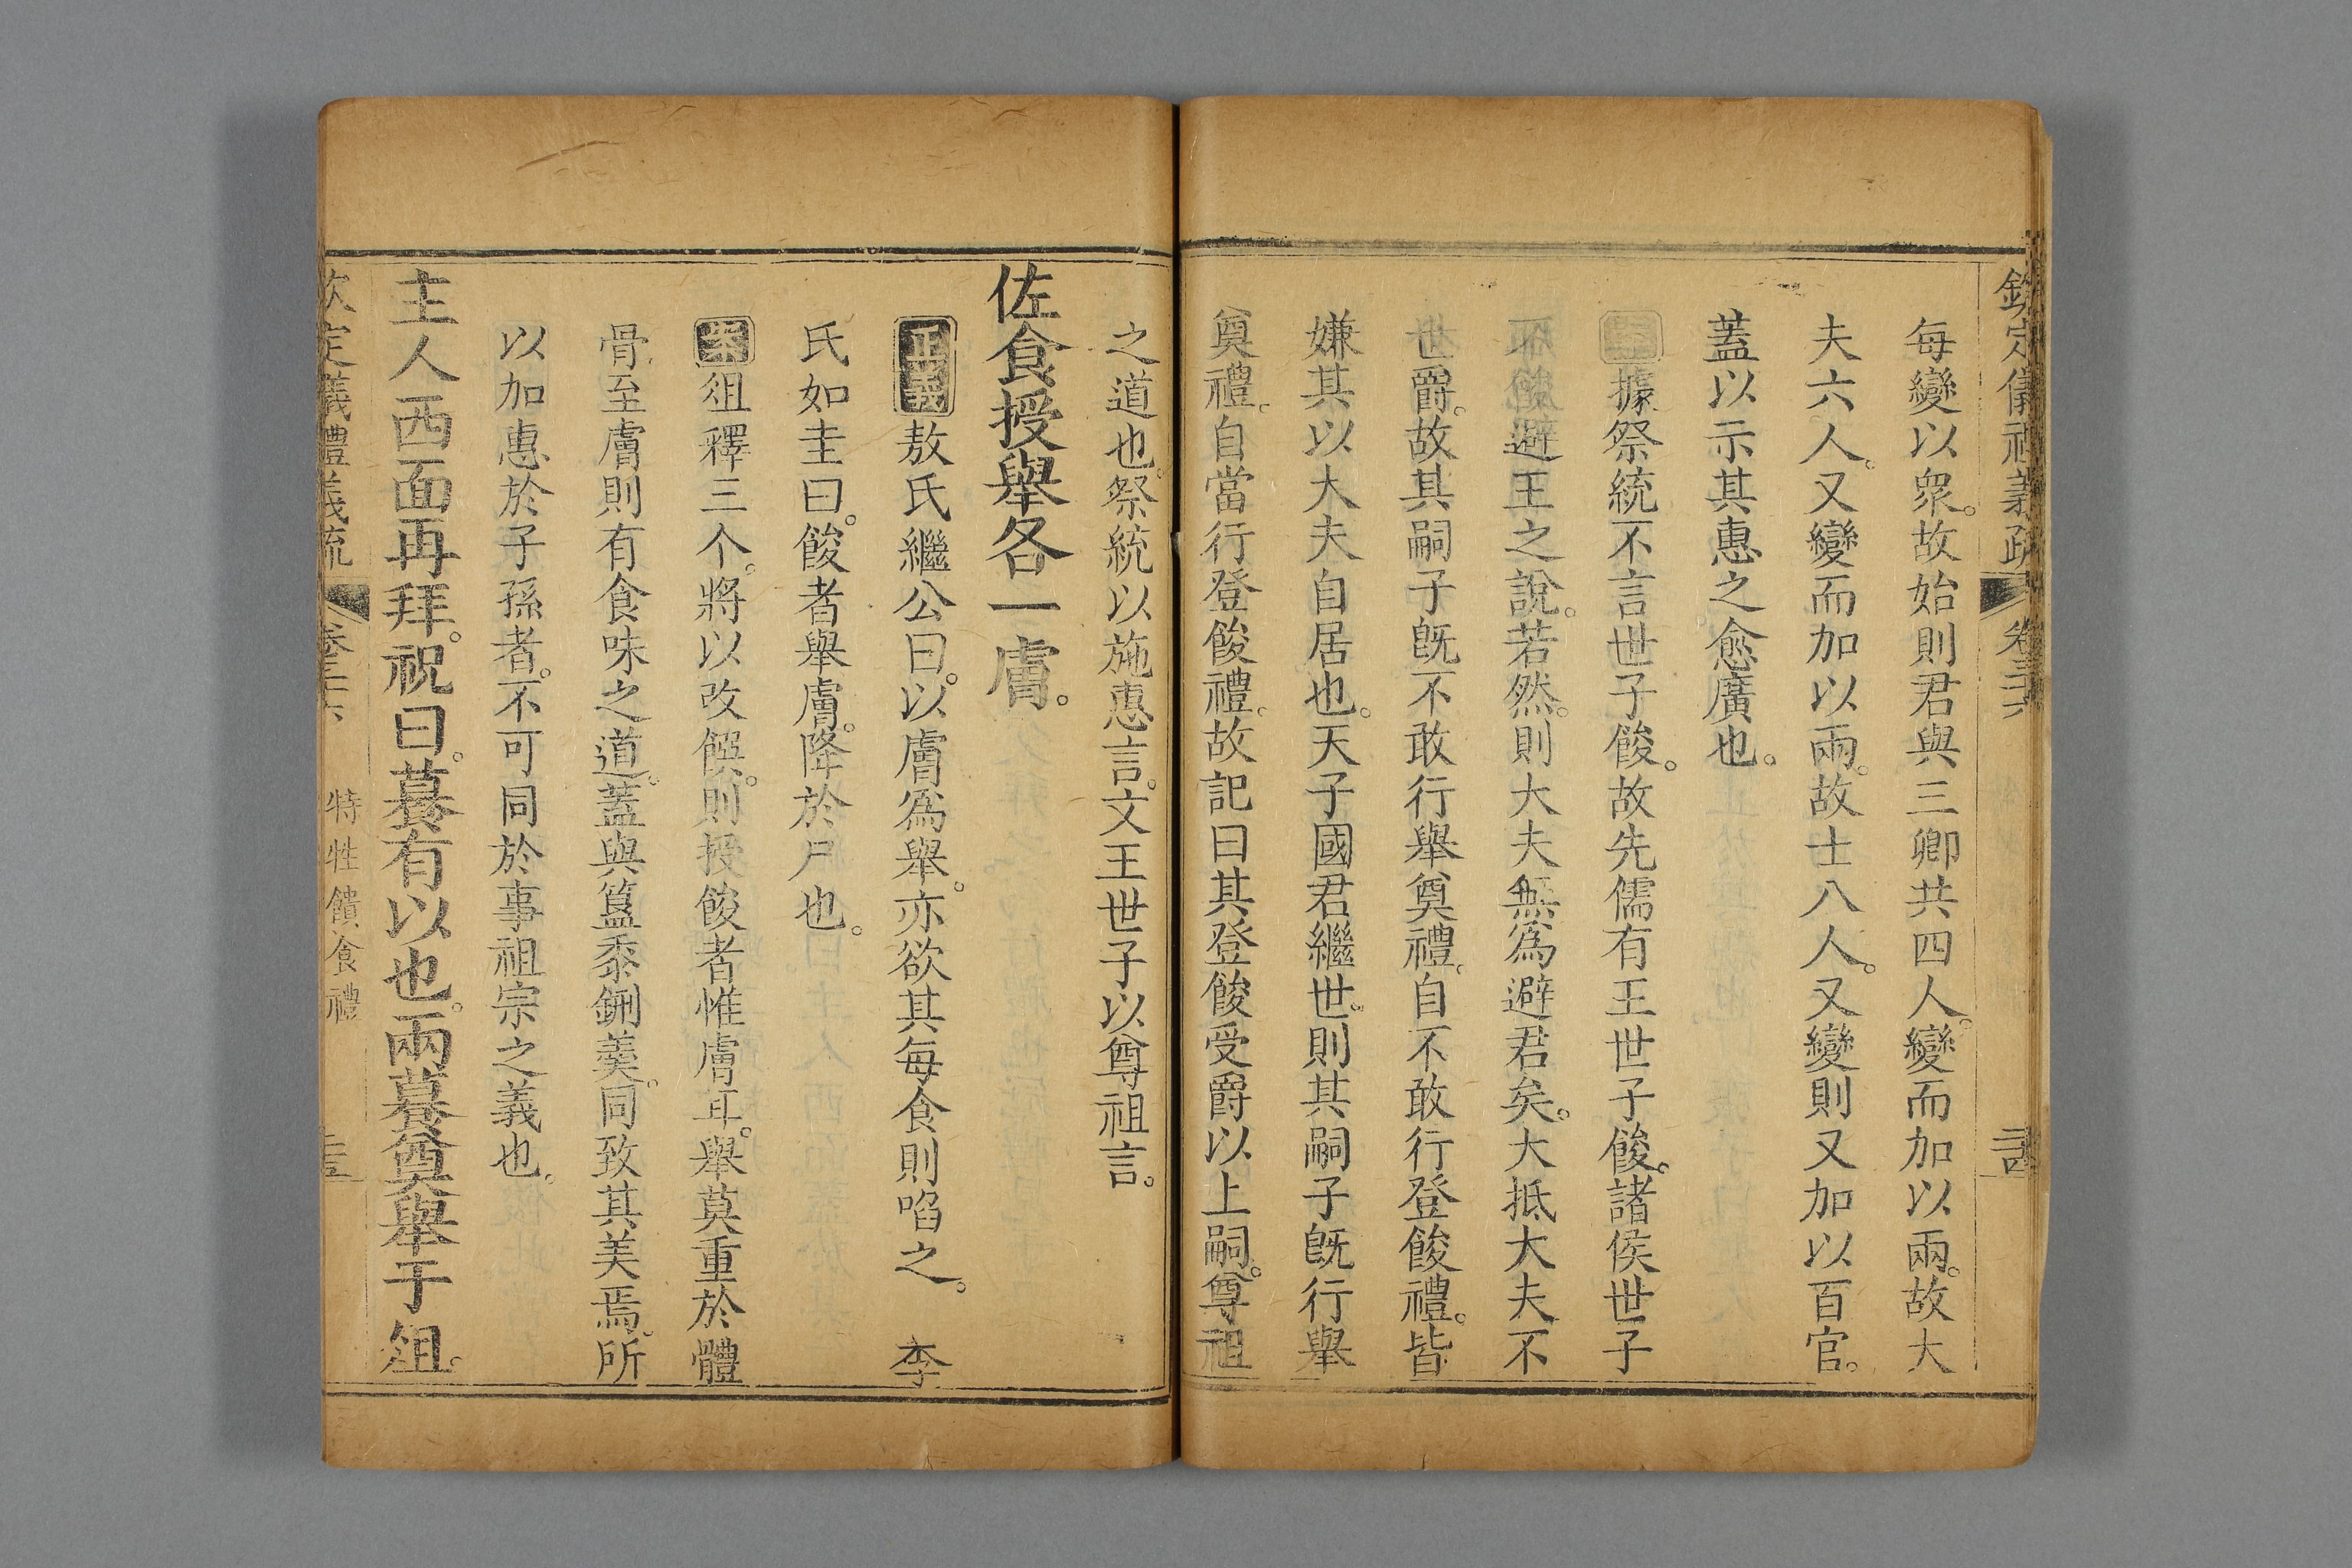 欽定儀禮義疏 卷三十六 二十四
每變以衆。故始則君與三卿共四人。變而加以兩。故大
夫六人。又變而加以兩。故士八人。又變則又加以百官。
蓋以示其惠之愈廣也。
據祭統不言世子餕。故先儒有王世子餕。諸侯世子
不餕避王之說。若然。則大夫無爲避君矣。大抵大夫不
世爵。故其嗣子旣不敢行舉奠禮。自不敢行登餕禮。皆
嫌其以大夫自居也。天子國君繼世。則其嗣子旣行舉
奠禮。自當行登餕禮。故記曰其登餕受爵以上嗣。尊祖
之道也。祭統以施惠言。文王世子以尊祖言。
佐食授舉各一膚。
正義敖氏繼公曰。以膚爲舉。亦欲其每食則啗之。 李
氏如圭曰。餕者舉膚。降於尸也。
案俎釋三个。將以改饌。則授餕者惟膚耳。舉莫重於體
骨。至膚則有食味之道。蓋與簋黍鉶羹。同致其美焉。所
以加惠於子孫者。不可同於事祖宗之義也。
主人西面再拜。祝曰。䉵有以也。兩䉵奠舉于俎。
欽定儀禮義疏 卷三十六 特牲饋食禮 二十五